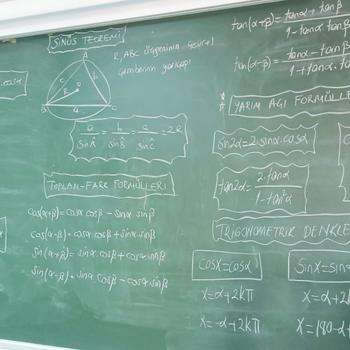 SİNÜS TEOREMİ
A
c
b
R
O
B
a
C
R, ABC üçgeninin çevrel
çemberinin yarıçapı
a/sinA = b/sinB = c/sinC = 2R
TOPLAM-FARK FORMÜLLERİ
cos(α+β)=cosα cosβ - sinα sinβ
cos(α-β)=cosα.cosβ+sinα.sinβ
sin(α+β)=sinα cosβ+cosα.sinβ
sin(α-β)=sinα cosβ-cosα.sinβ
tan(α+β)= tanα+tanβ / 1-tanα tanβ
tan(α-β)= tanα-tanβ / 1+tanα.ta
YARIM AÇI FORMÜLLE
sin2α=2.sinα.cosα
tan2α= 2.tanα / 1-tan²α
TRİGONOMETRİK DENKLE
cosx=cosα
x=α+2kπ
x=-α+2kπ
sinx=sin
x=α+2k
x=180-α+
.cosα